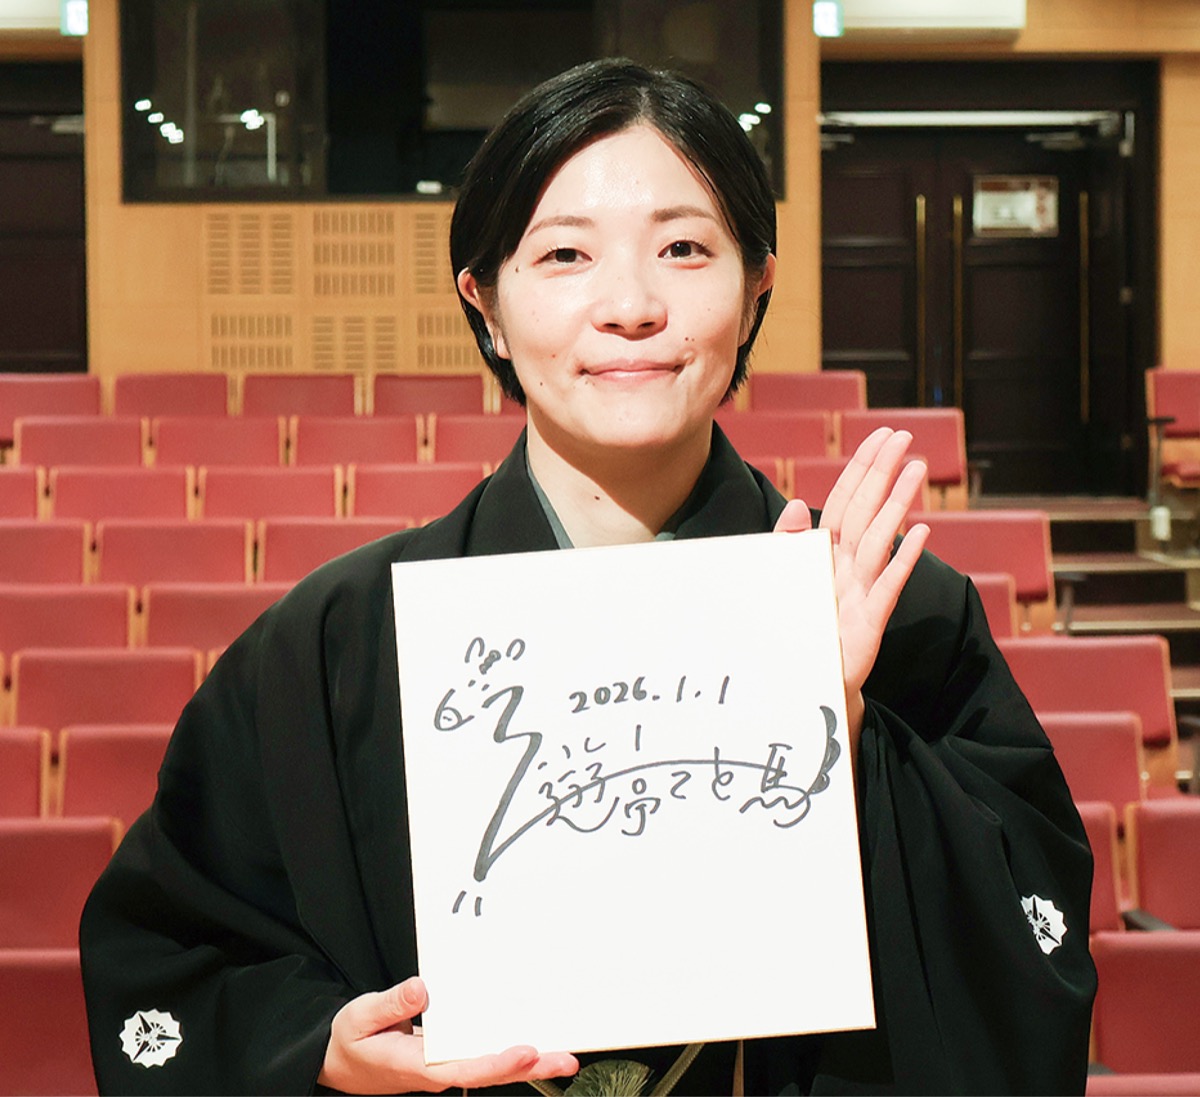 2026.1.1
三遊亭こと馬